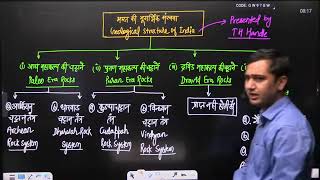 CODE: GWGTGW
08:17
भारत की भूगर्भिक संरचना
Geological Structure of India
Presented by
T H Hande
(i) आद्य महाकल्प की चट्टानें
Paleo Era Rocks
(ii) पुराण महाकल्प की चट्टानें
Puran Era Rocks
(iii) द्रविड़ महाकल्प की चट्टानें
Dravid Era Rocks
चट्टान तंत्र
Archean
Rock
System
धारवाड़
चट्टान तंत्र
Dharwar Rock
System
कुडप्पा चट्टान
तंत्र
Cuddapah
Rock System
विंध्यन
चट्टान तंत्र
Vindhyan
Rock System